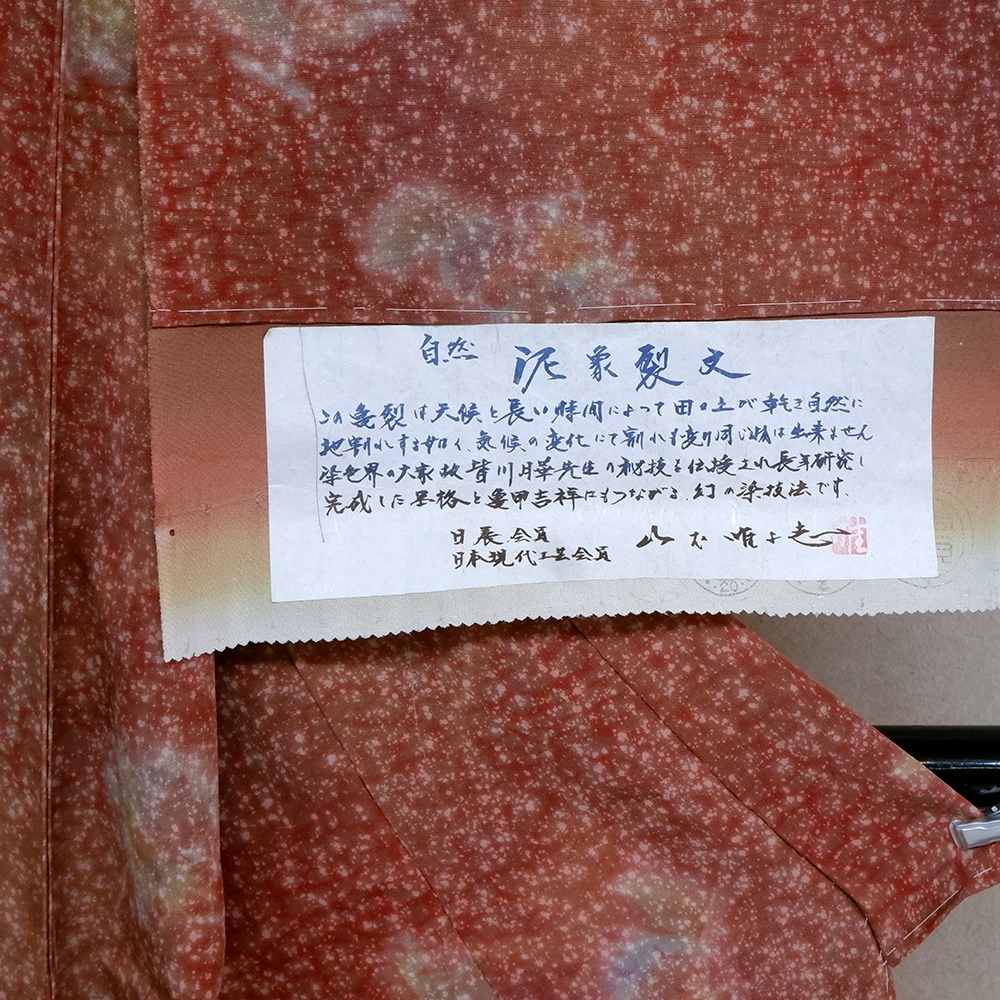 自然 泥象裂文
この亀裂は天候と長い時間によって田の土が乾き自然に
地割れする如く、気候の変化にて割れも変り同じ物は出来ません
染色界の大家故皆川月華先生の秘技を伝授され長年研究し
完成した品格と亀甲吉祥にもつながる、幻の染技法です。
日展会員
日本現代工芸会員
山本唯与志